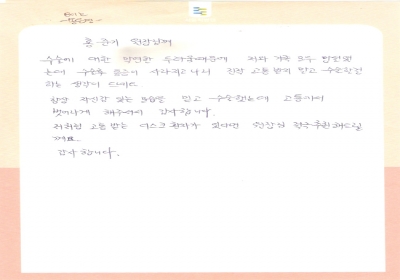 홍준기 원장님께
수술에 대한 막연한 두려움때문에 저와 가족 모두 망설였
는데 수술후 통증이 사라지고 나서 진작 고통받지 말고 수술할걸
라는 생각이 드네요
항상 자신감 있는 모습을 믿고 수술했는데 고통에서
벗어나게 해주셔서 감사합니다.
저처럼 고통받는 디스크 환자가 있다면 원장님 적극추천해드릴
께요.
감사합니다.